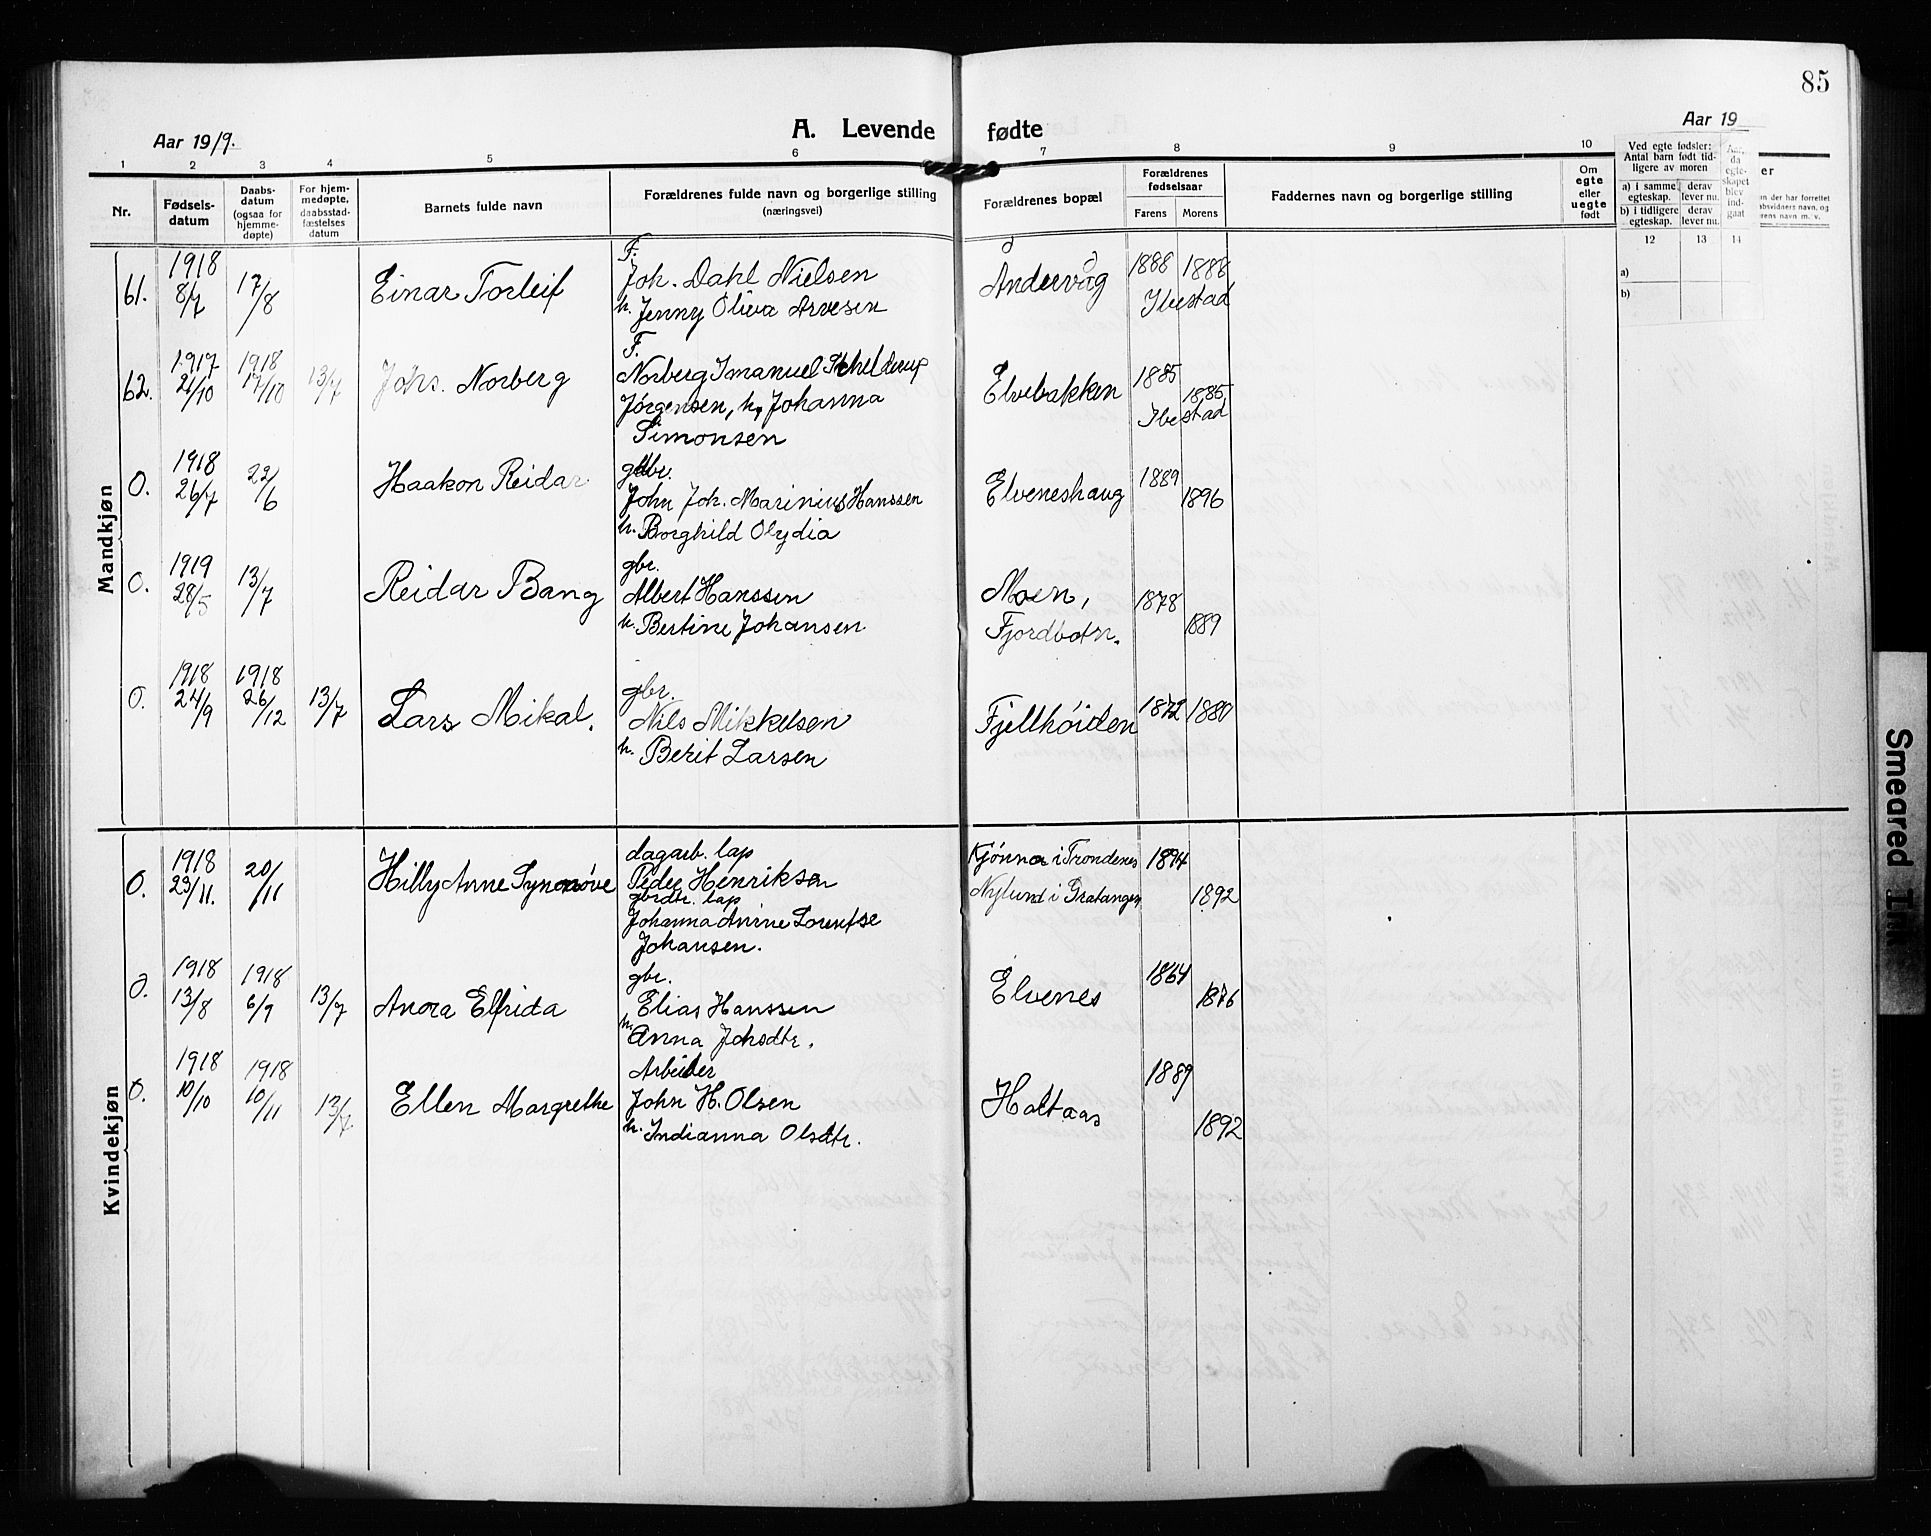 85
Aar 1919.
A. Levende fødte
Aar 19
1 2 3 4 5 6 7 8 9 10
Nr.
Fødsels-
datum
Daabs-
datum
(ogsaa for
hjemme-
døpte)
For hjem-
medøpte,
daabsstad-
fæstelses
datum
Barnets fulde navn
Forældrenes fulde navn og borgerlige stilling
(næringsvei)
Forældrenes bopæl
Forældrenes
fødselsaar
Farens Morens
Faddernes navn og borgerlige stilling
Om
egte
eller
uegte
født
Ved egte fødsler:
Antal barn født tid-
ligere av moren
a) i samme
egteskap.
derav
lever nu.
b) i tidligere
egteskap.
derav
lever nu.
Aar,
da
egte-
skapet
blev
ind-
gaat
12 13 14
a)
b)
Mandkjøn
61. 1918 8/7 17/8 Einar Torleif
F.
Joh. Dahl Nielsen
h. Jenny Oliva Arvesen
Åndervåg 1888 1888
Ibestad
62. 1917 21/10 1918 17/10 13/7 Johs. Norberg
F.
Norberg Imanuel
Jørgensen, h, Johanna
Simonsen
Elvebakken 1885 1885
Ibestad
O. 1918 26/7 22/6 Haakon Reidar
gdbr.
John Joh. Marinius Hanssen
h. Borghild Olydia
Elveneshaug 1889 1896
O. 1919 28/5 13/7 Reidar Bang
gbr.
Albert Hanssen
h. Bertine Johansen
Moen,
Fjordbotn. 1878 1889
O. 1918 24/9 1918 26/12 13/7 Lars Mikal.
gbr.
Nils Mikkelsen
h. Berit Larsen
Fjellhöiden 1872 1880
Kvindekjøn
O. 1918 23/11. 20/11 Hilly Anne Synnøve
dagarb. lap
Peder Henriksen
gbrdtr. lap
Johanna Anine Lorentse
Johansen.
Kjönna i Trondenes 1894
Nylund i Gratangen 1892
O. 1918 13/8 1918 6/9 13/7 Anora Elfrida
gbr.
Elias Hanssen
h. Anna Johsdtr.
Elvenes 1864 1876
O. 1918 10/10 1918 10/11 13/7 Ellen Margrethe
Arbeider
John H. Olsen
h. Indianna Olsdtr.
Holtaas 1889 1892
Smeared Ink